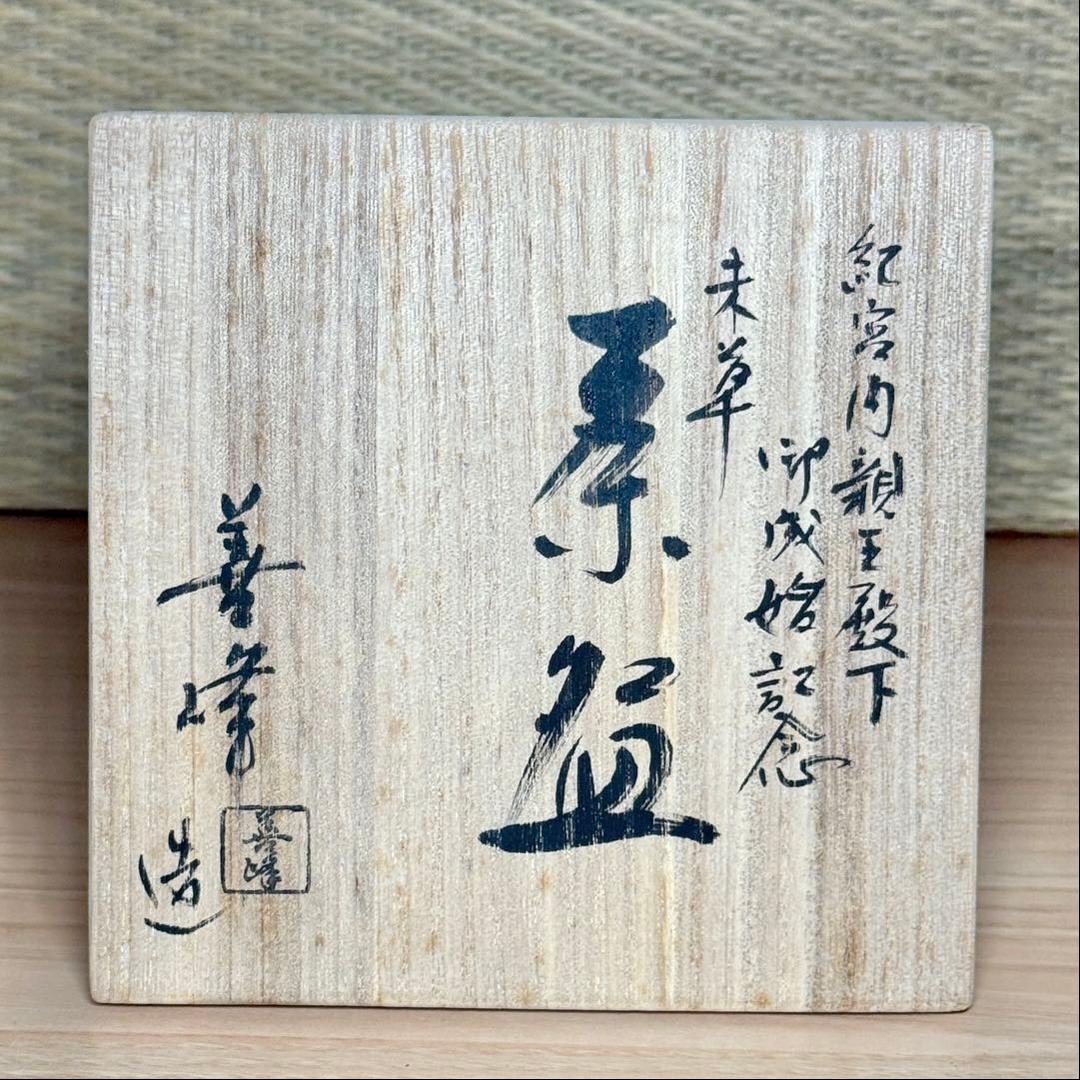 紀宮内親王殿下
御成婚記念
未草
茶盌
善峰
造
善峰